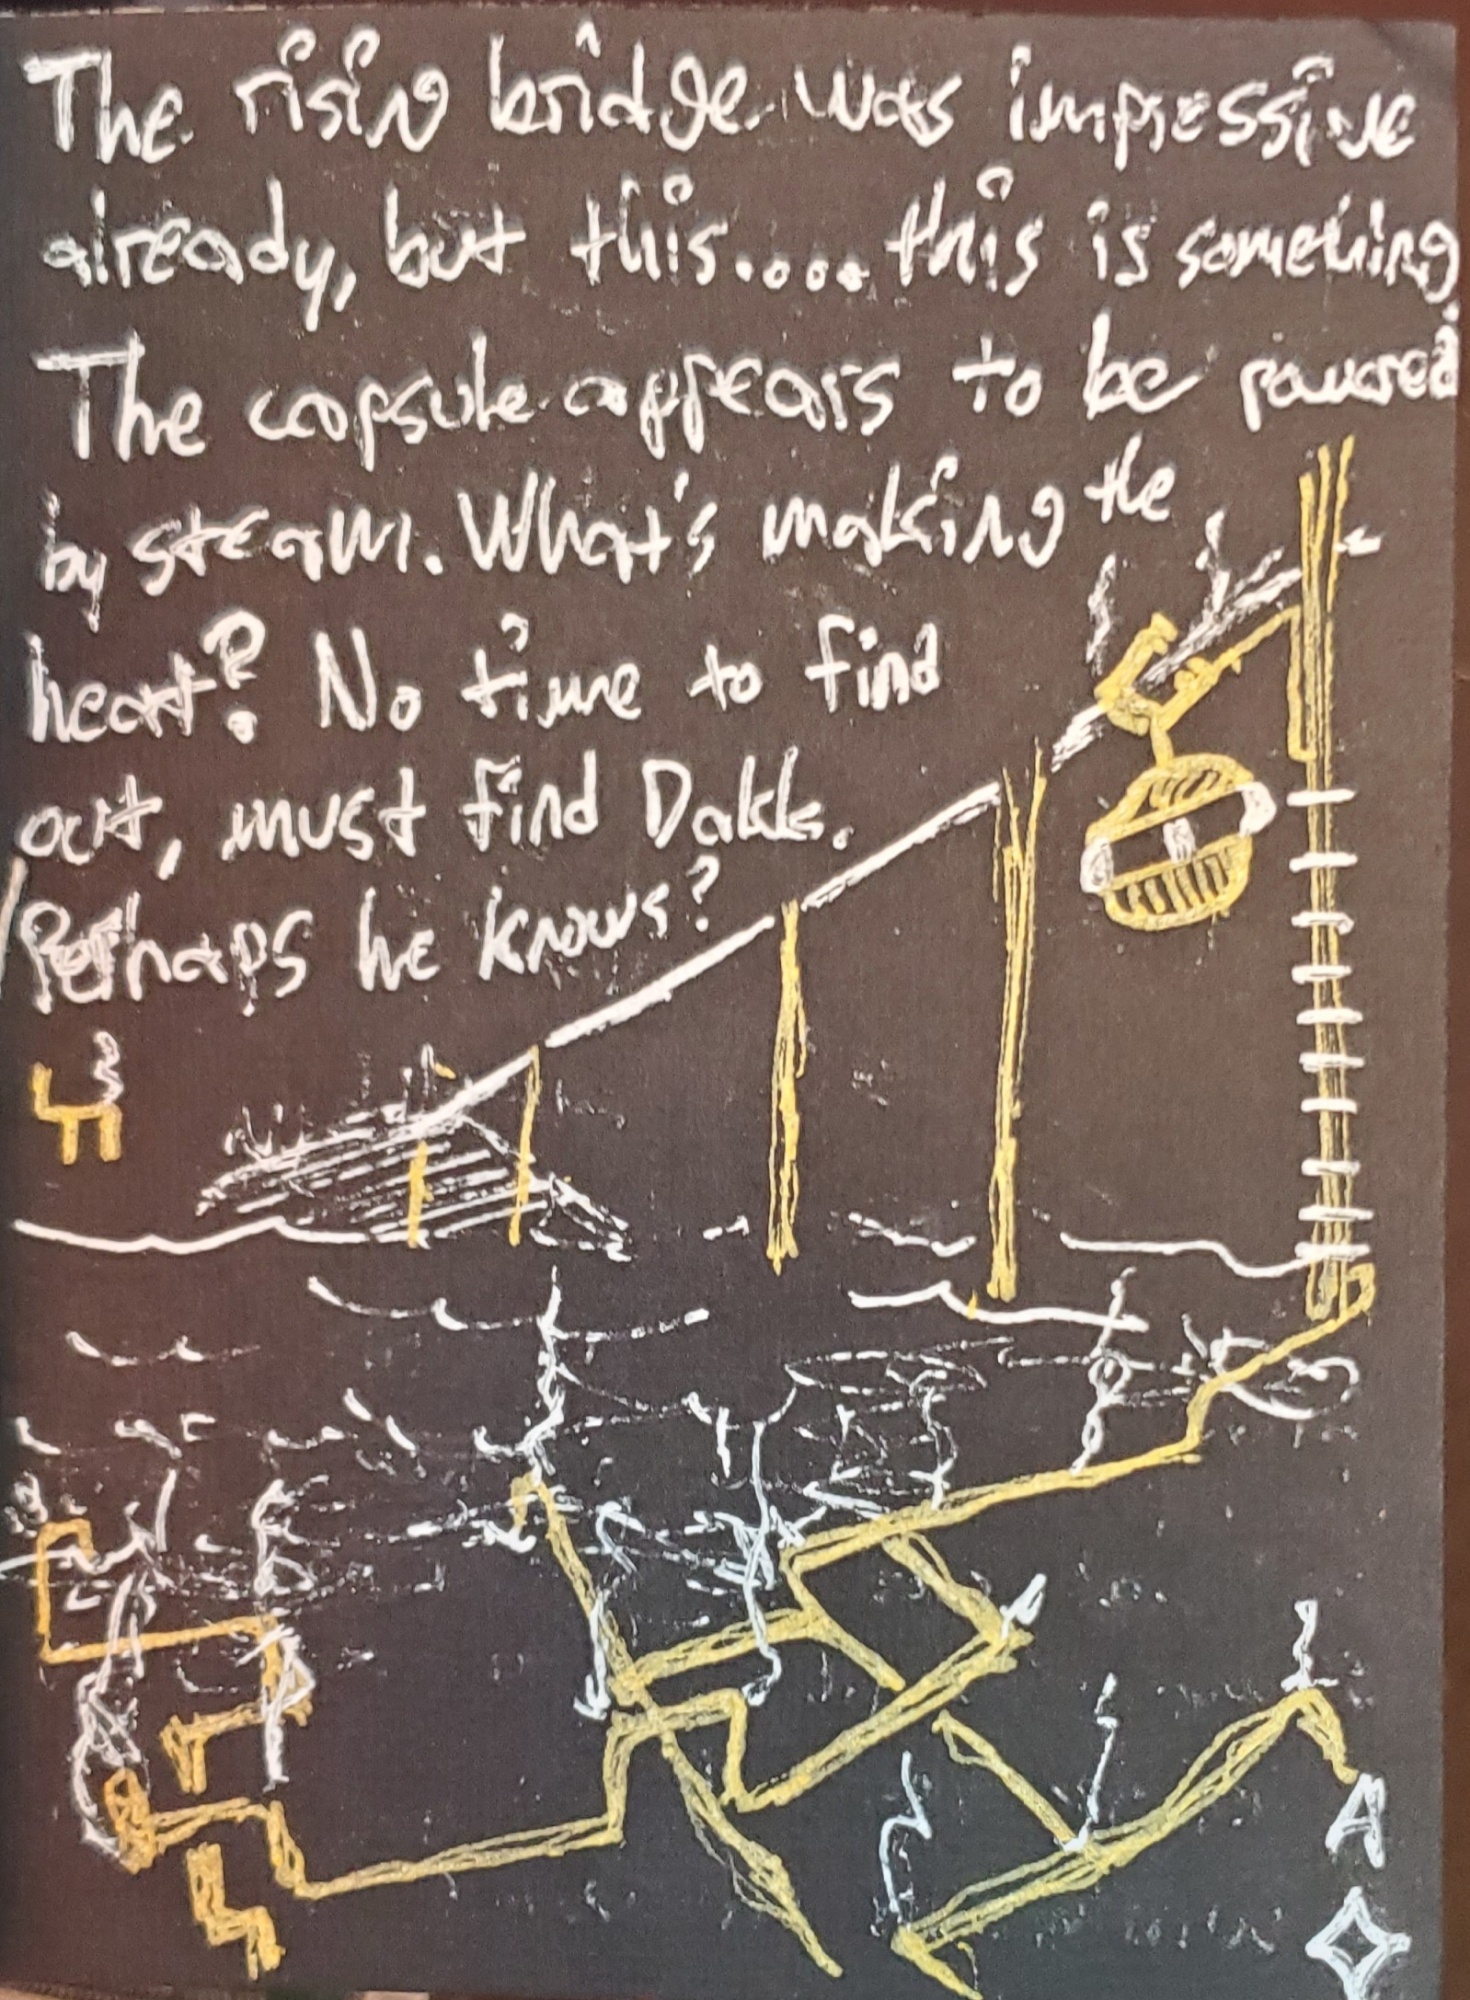 The rising bridge was impressive
already, but this.... this is something.
The capsule appears to be powered
by steam. What's making the
heat? No time to find
out, must find Dakk.
Perhaps he knows?
A